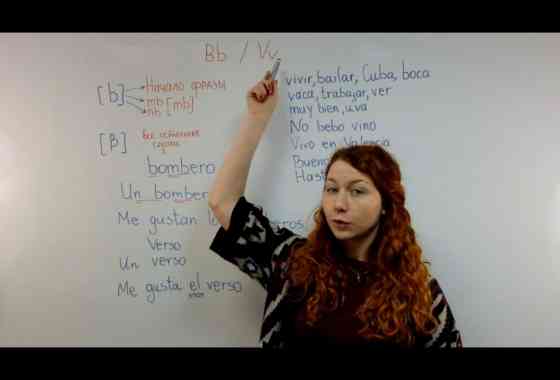 Bb / Vv
[b] Начало фразы
mb [mb]
nb
[β] Все остальные
случаи
bombero
Un bombero
Me gustan
Verso
Un verso
Me gusta el verso
vivir, bailar, Cuba, boca
vaca, trabajar, ver
muy bien, uva
No bebo vino
Vivo en Valencia